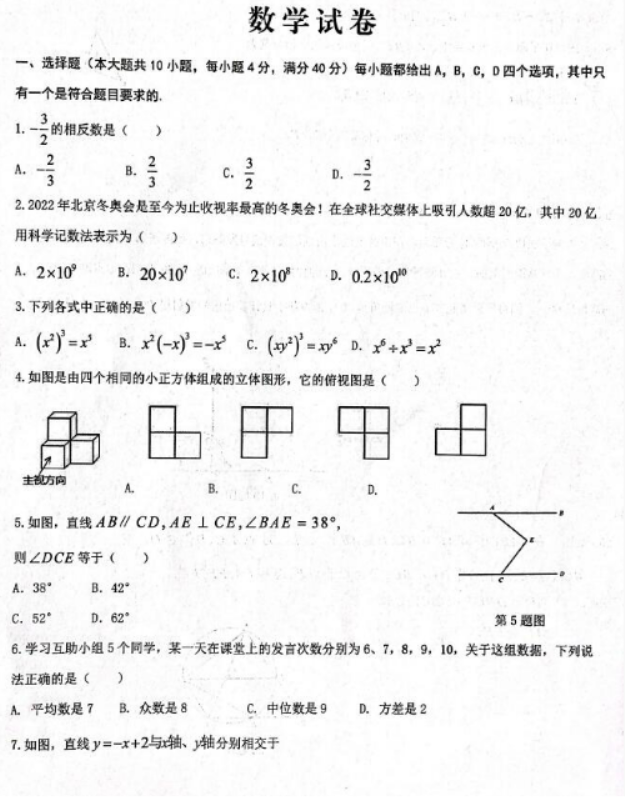 数学试卷
一、选择题（本大题共 10 小题，每小题 4 分，满分 40 分）每小题都给出 A，B，C，D 四个选项，其中只
有一个是符合题目要求的.
1. -3/2 的相反数是（　　）
A. -2/3　B. 2/3　C. 3/2　D. -3/2
2. 2022 年北京冬奥会是至今为止收视率最高的冬奥会！在全球社交媒体上吸引人数超 20 亿，其中 20 亿
用科学记数法表示为（　　）
A. 2×10⁹　B. 20×10⁷　C. 2×10⁸　D. 0.2×10¹⁰
3. 下列各式中正确的是（　　）
A. (x²)³=x⁵　B. x²(-x)³=-x⁵　C. (xy²)³=xy⁶　D. x⁶÷x³=x²
4. 如图是由四个相同的小正方体组成的立体图形，它的俯视图是（　　）
主视方向
A.　B.　C.　D.
5. 如图，直线 AB∥CD, AE⊥CE, ∠BAE=38°,
则∠DCE 等于（　　）
A. 38°　B. 42°
C. 52°　D. 62°
A　B
E
C
第 5 题图
6. 学习互助小组 5 个同学，某一天在课堂上的发言次数分别为 6、7，8，9，10，关于这组数据，下列说
法正确的是（　　）
A. 平均数是 7　B. 众数是 8　C. 中位数是 9　D. 方差是 2
7. 如图，直线 y=-x+2与x轴、y轴分别相交于